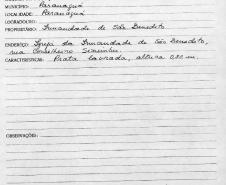 MUNICÍPIO: Paranaguá
LOCALIDADE: Paranaguá
LOGRADOURO:
PROPRIETÁRIO: Irmandade de São Benedito
ENDEREÇO: Igreja da Irmandade de São Benedito,
rua Conselheiro Sinimbu.
CARACTERÍSTICAS: Prata lavrada, altura m.
OBSERVAÇÕES: